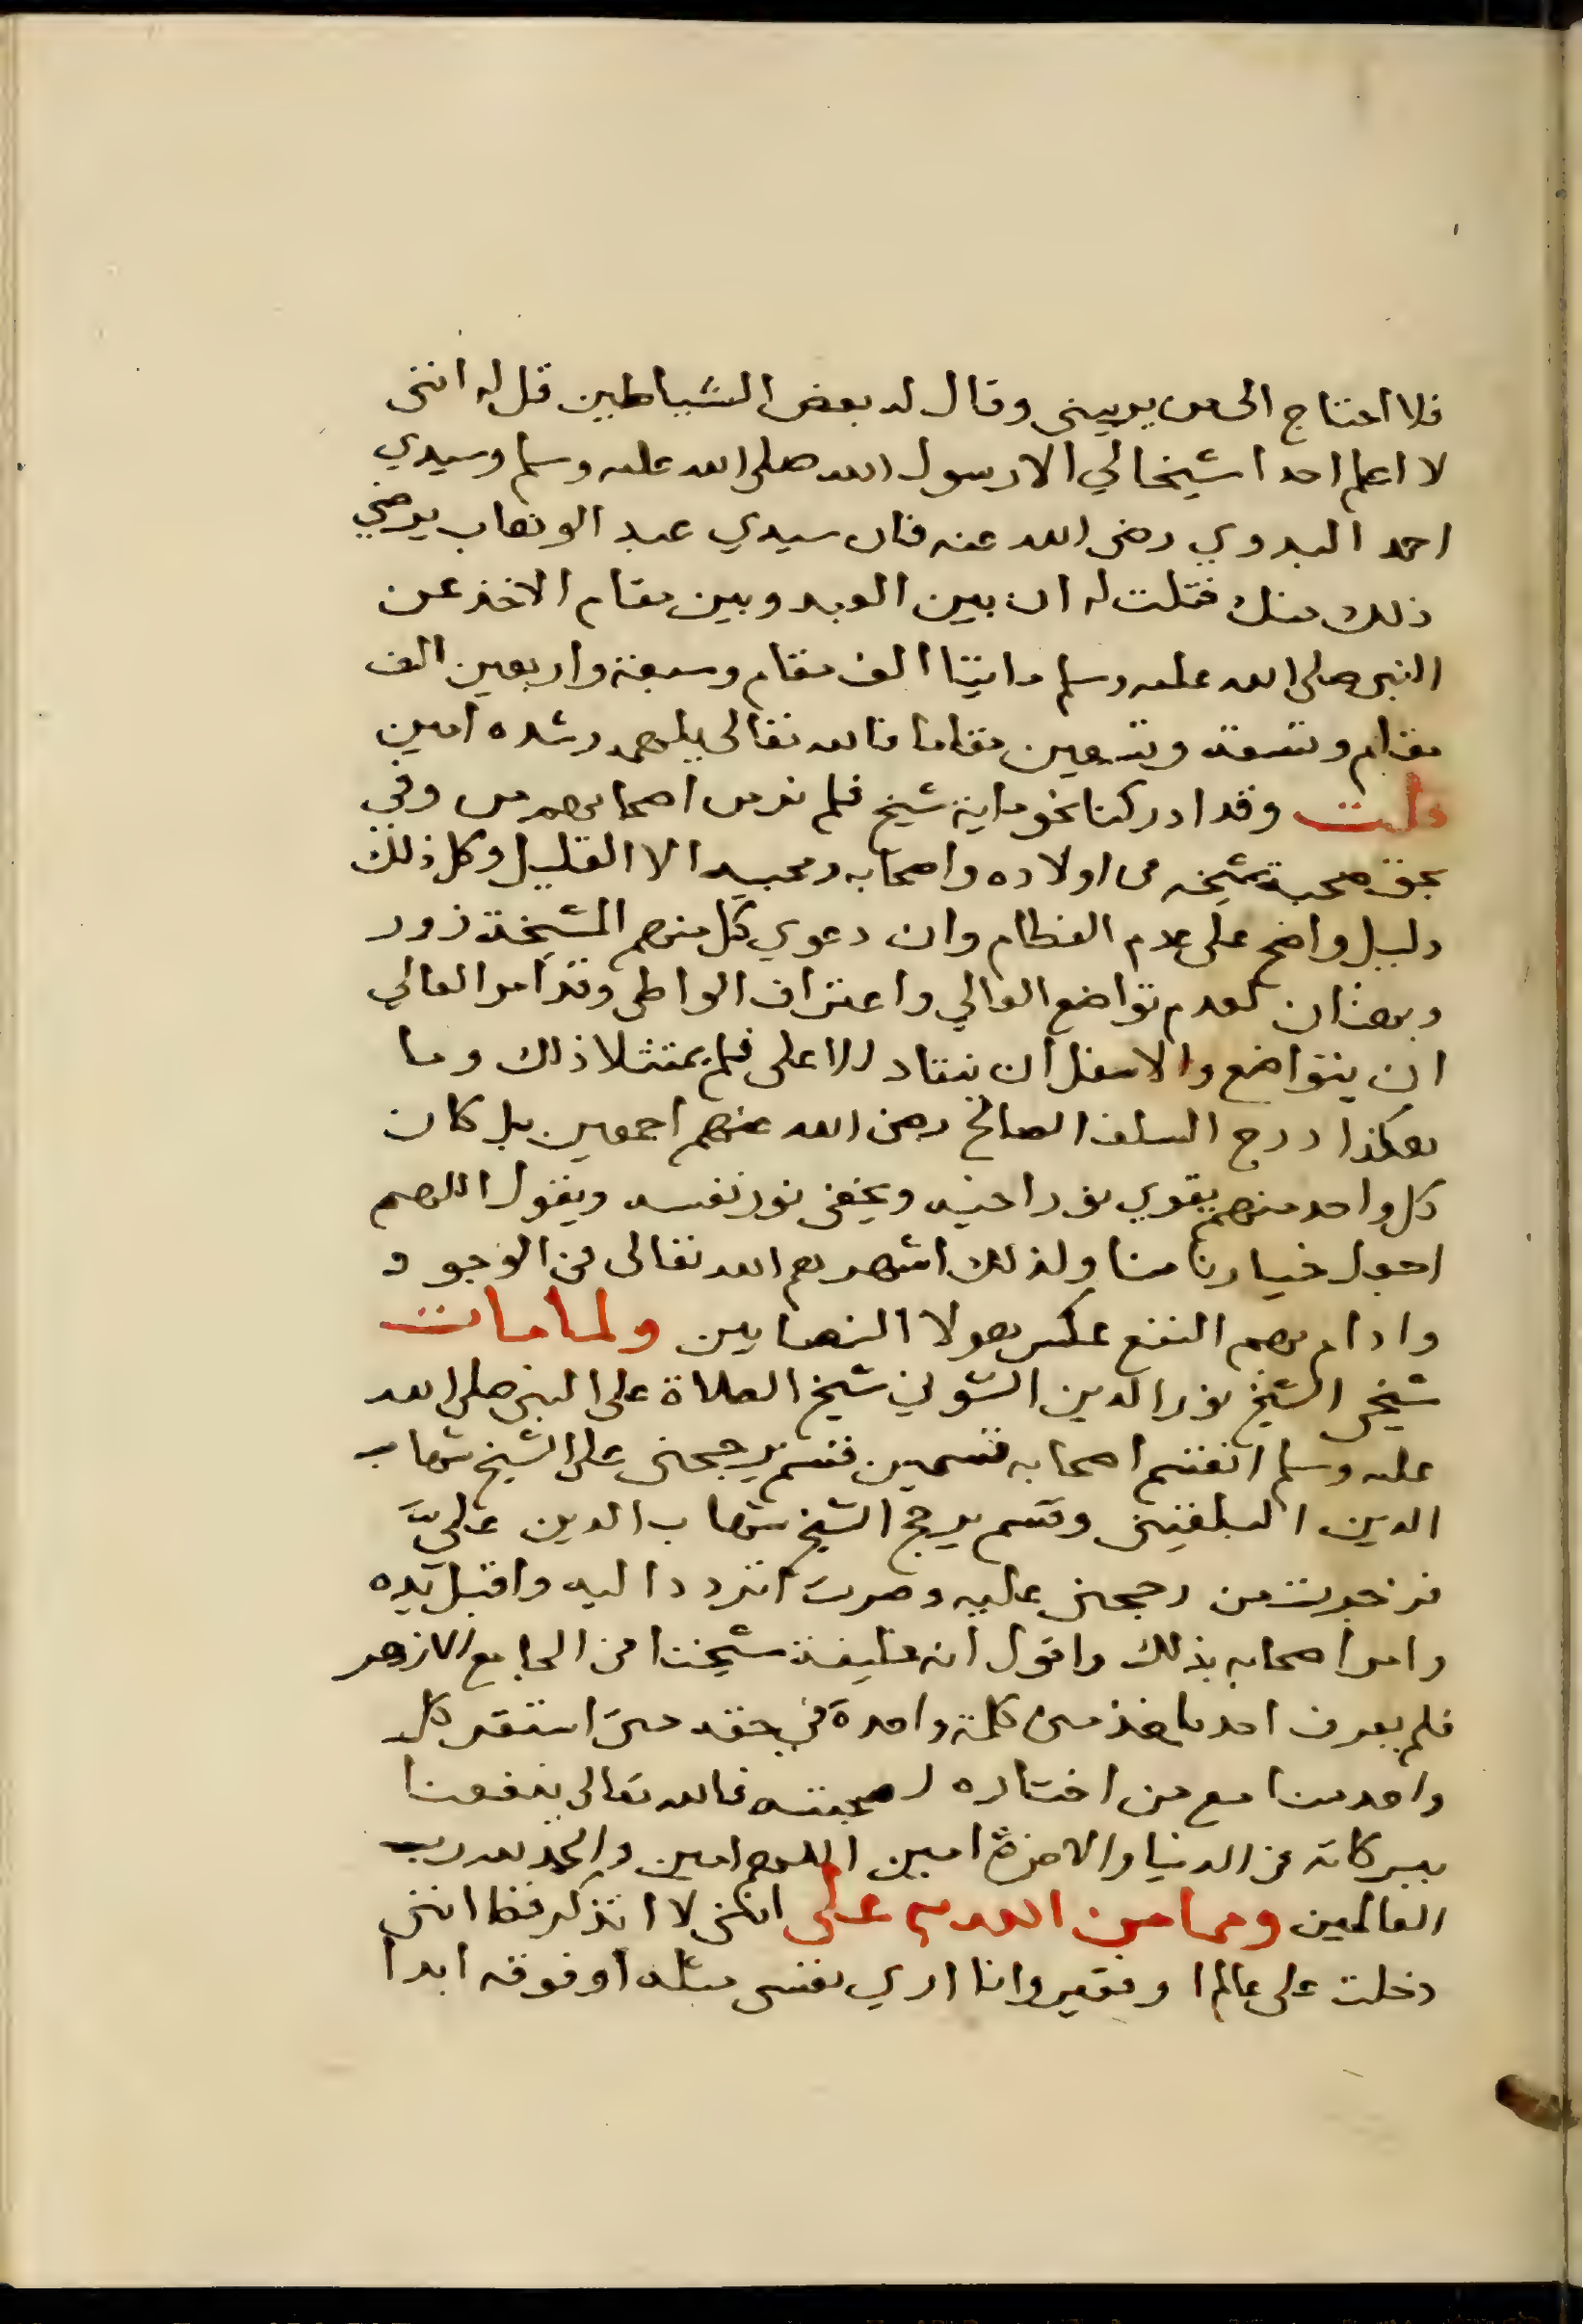 فلا احتاج الى من يربينى وقال له بعض الشياطين قل له اننى
لا اعلم احدا شيخا لي الا رسول الله صلى الله عليه وسلم وسيدي
احمد البدوي رضى الله عنه فان سيدي عبد الوهاب يرضي
ذلك منك فقلت له ان بين العبد وبين مقام الاخذ عن
النبى صلى الله عليه وسلم مايتا الف مقام وسبعة واربعين الف
مقام وتسعة وتسعين مقاما فالله تعالى يلهمه رشده امين
قلت وقد ادركنا نحو ماية شيخ فلم نر من اصحابهم من وفى
بحق صحبة شيخه من اولاده واصحابه ومحبيه الا القليل وكل ذلك
دليل واضح على عدم الفطام وان دعوي كل منهم المشيخة زور
وبهتان لعدم تواضع العالي واعتراف الواطى وقد امر العالي
ان يتواضع والاسفل ان ينقاد للاعلى فلم يمتثلا ذلك وما
هكذا درج السلف الصالح رضى الله عنهم اجمعين بل كان
كل واحد منهم يقوي نور اخيه ويخفى نور نفسه ويقول اللهم
اجعل خيارنا منا ولذلك اشهرهم الله تعالى فى الوجود
وادام بهم النفع عكس هولا النصابين ولما مات
شيخى الشيخ نور الدين الشونى شيخ الصلاة على النبى صلى الله
عليه وسلم انقسم اصحابه قسمين قسم يرجحنى على الشيخ شهاب
الدين البلقينى وقسم يرجح الشيخ شهاب الدين عَلَيَّ
فزجرت من رجحنى عليه وصرت اتردد اليه واقبل يده
وامر اصحابه بذلك واقول انه خليفة شيخنا فى الجامع الازهر
فلم يعرف احد ياخذ منى كلمة واحدة فى حقه حتى استقر كل
واحد منا مع من اختاره لصحبته فالله تعالى ينفعنا
ببركاته فى الدنيا والاخرة امين اللهم امين والحمد لله رب
العالمين ومما من الله به على اننى لا اتذكر قط اننى
دخلت على عالم او فقير وانا اري نفسى مثله او فوقه ابدا